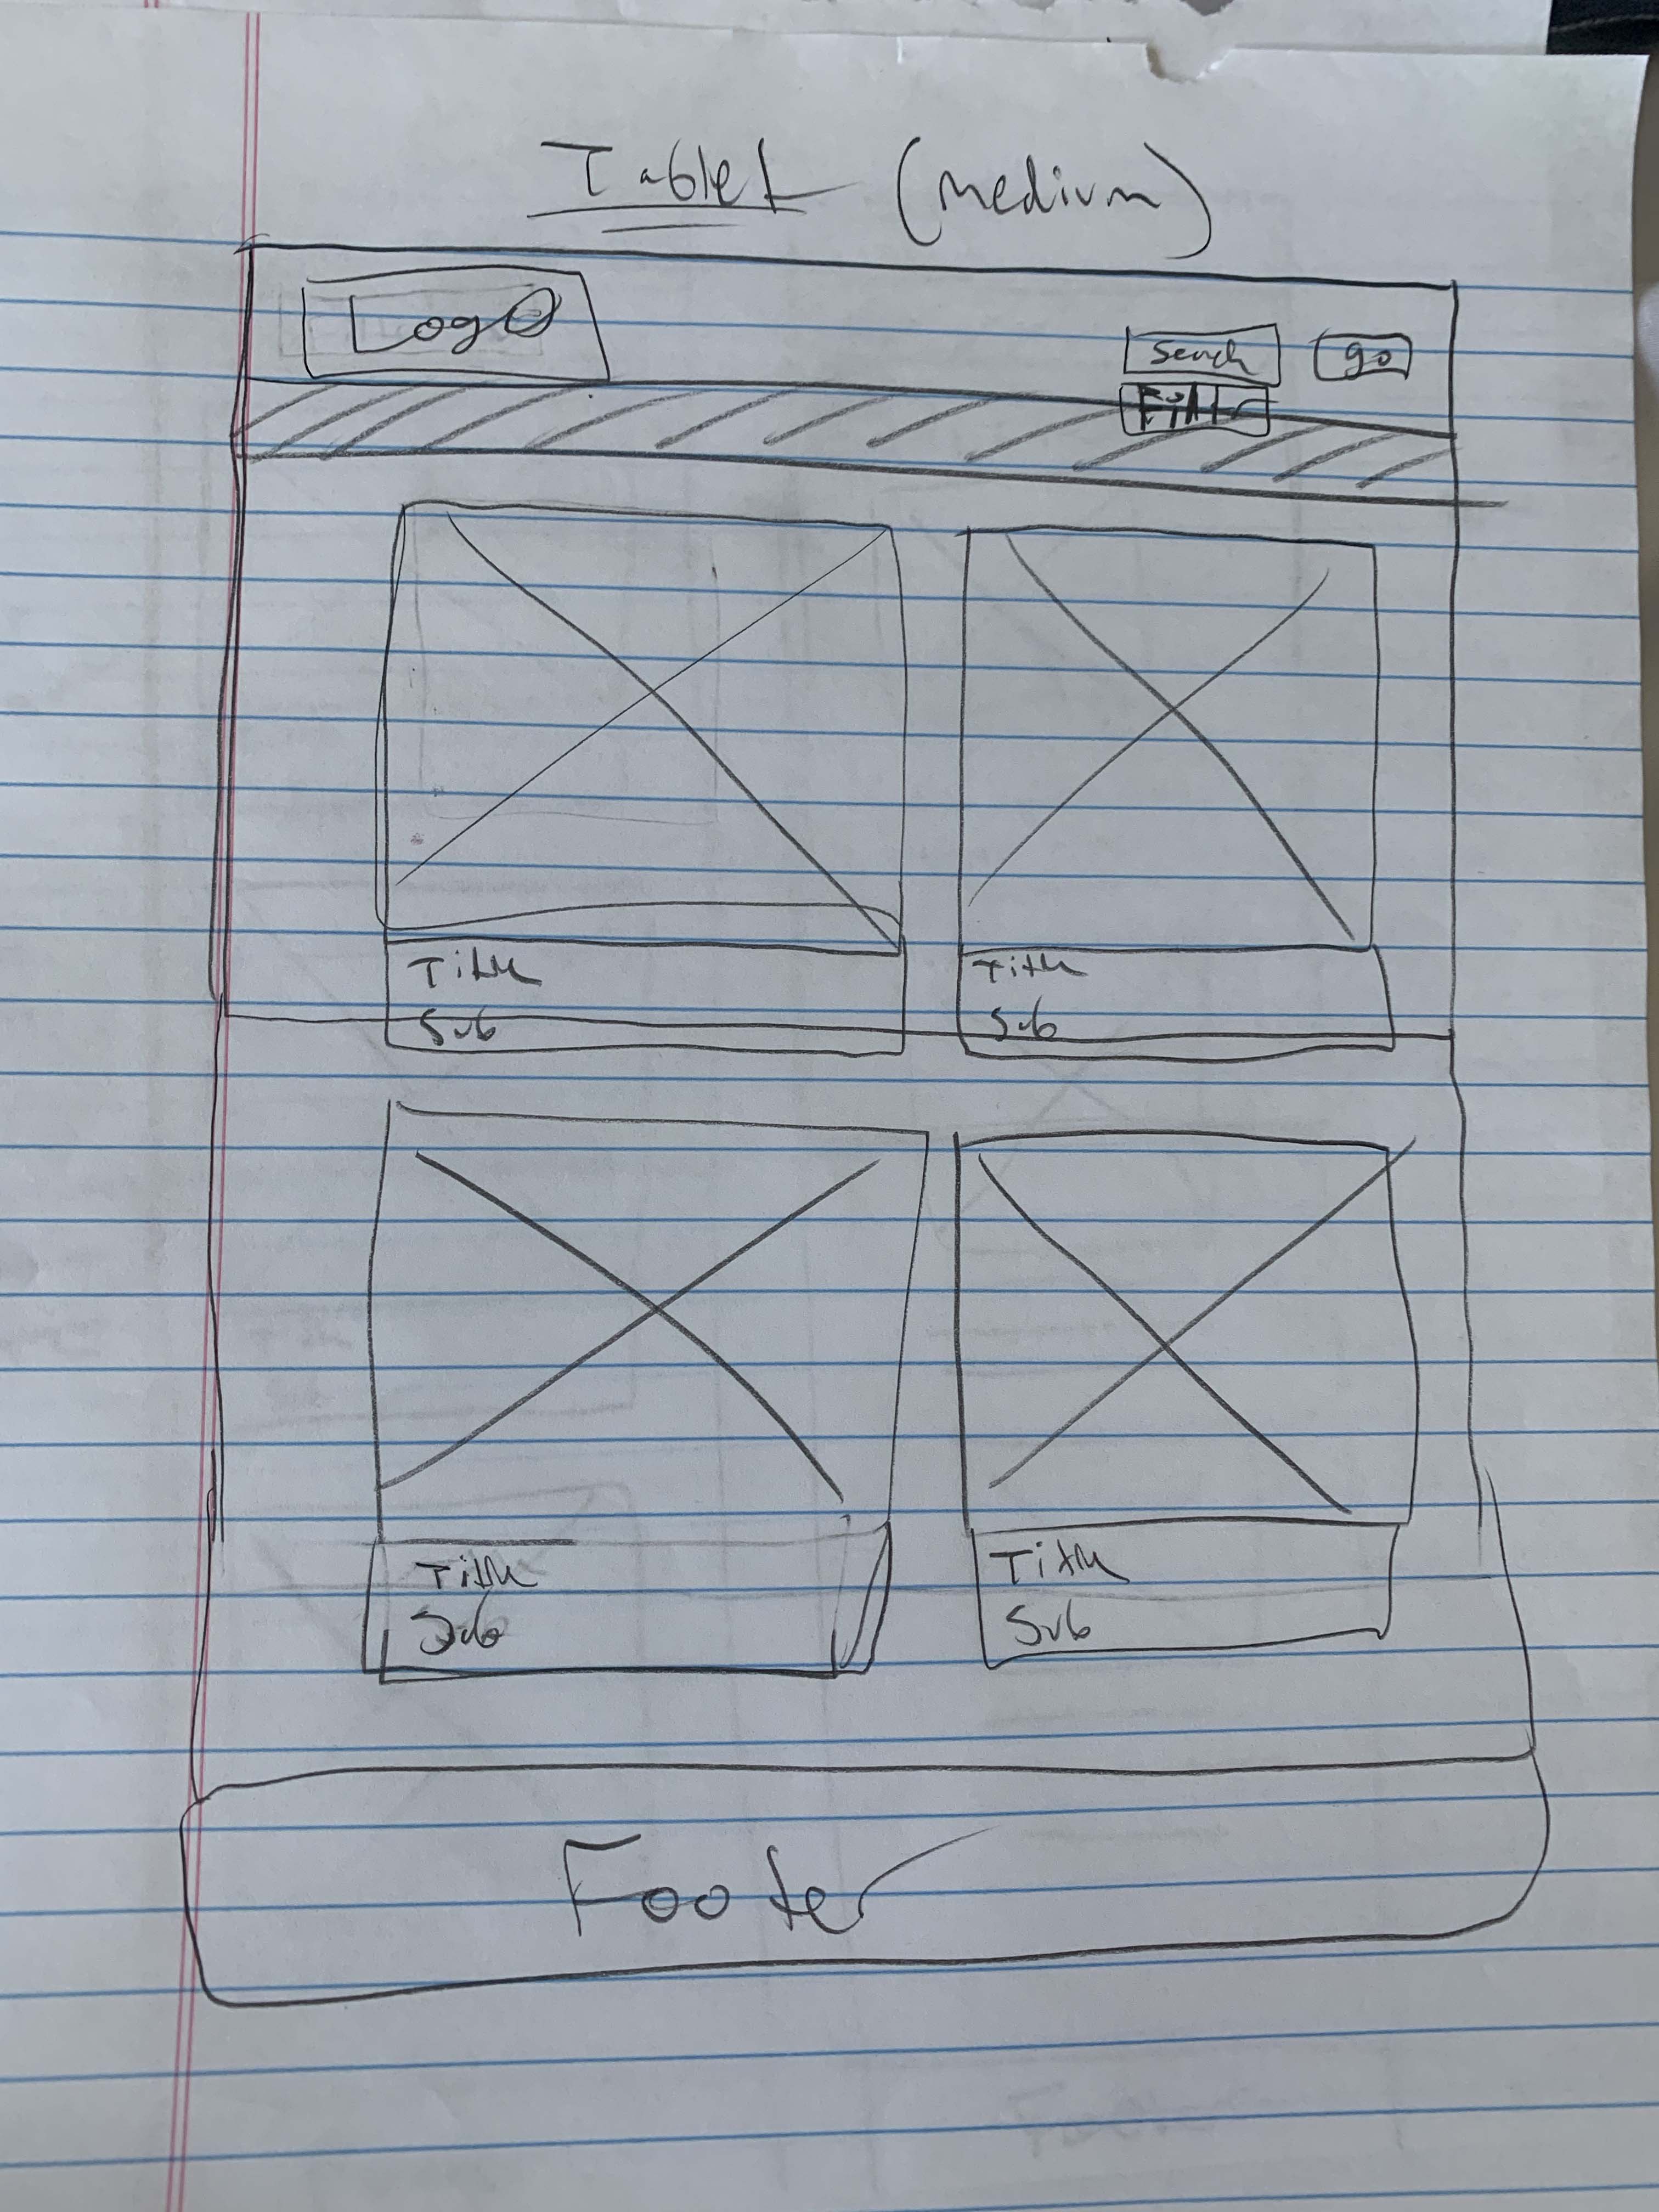 Tablet (medium)
Logo
Search go
Filter
Title Title
Sub Sub
Title Title
Sub Sub
Footer